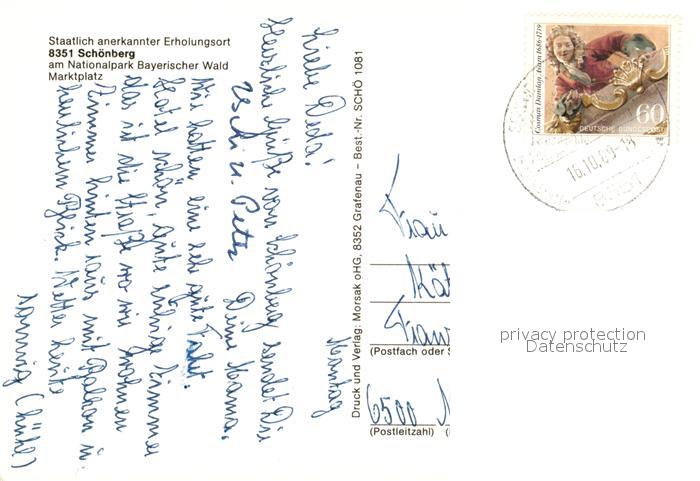 Staatlich anerkannter Erholungsort
8351 Schönberg
am Nationalpark Bayerischer Wald
Marktplatz
Montag
Liebe
Herzliche Grüße von Schönberg sendet Dir
Uschi u. Peter Deine Mama.
Wir hatten eine sehr gute Fahrt.
Hotel schön, gute ruhige Zimmer
das ist die Straße wo wir wohnen
Zimmer hinten raus mit Balkon u.
herrlichem Blick. Wetter heute
sonnig (kühl)
Druck und Verlag: Morsak oHG, 8352 Grafenau – Best.-Nr. SCHÖ 1081
Cosmas Damian Asam 1686-1739
60
DEUTSCHE BUNDESPOST
16.10.89-18
Frau
Kät
(Postfach oder S
6500
(Postleitzahl)
privacy protection
Datenschutz